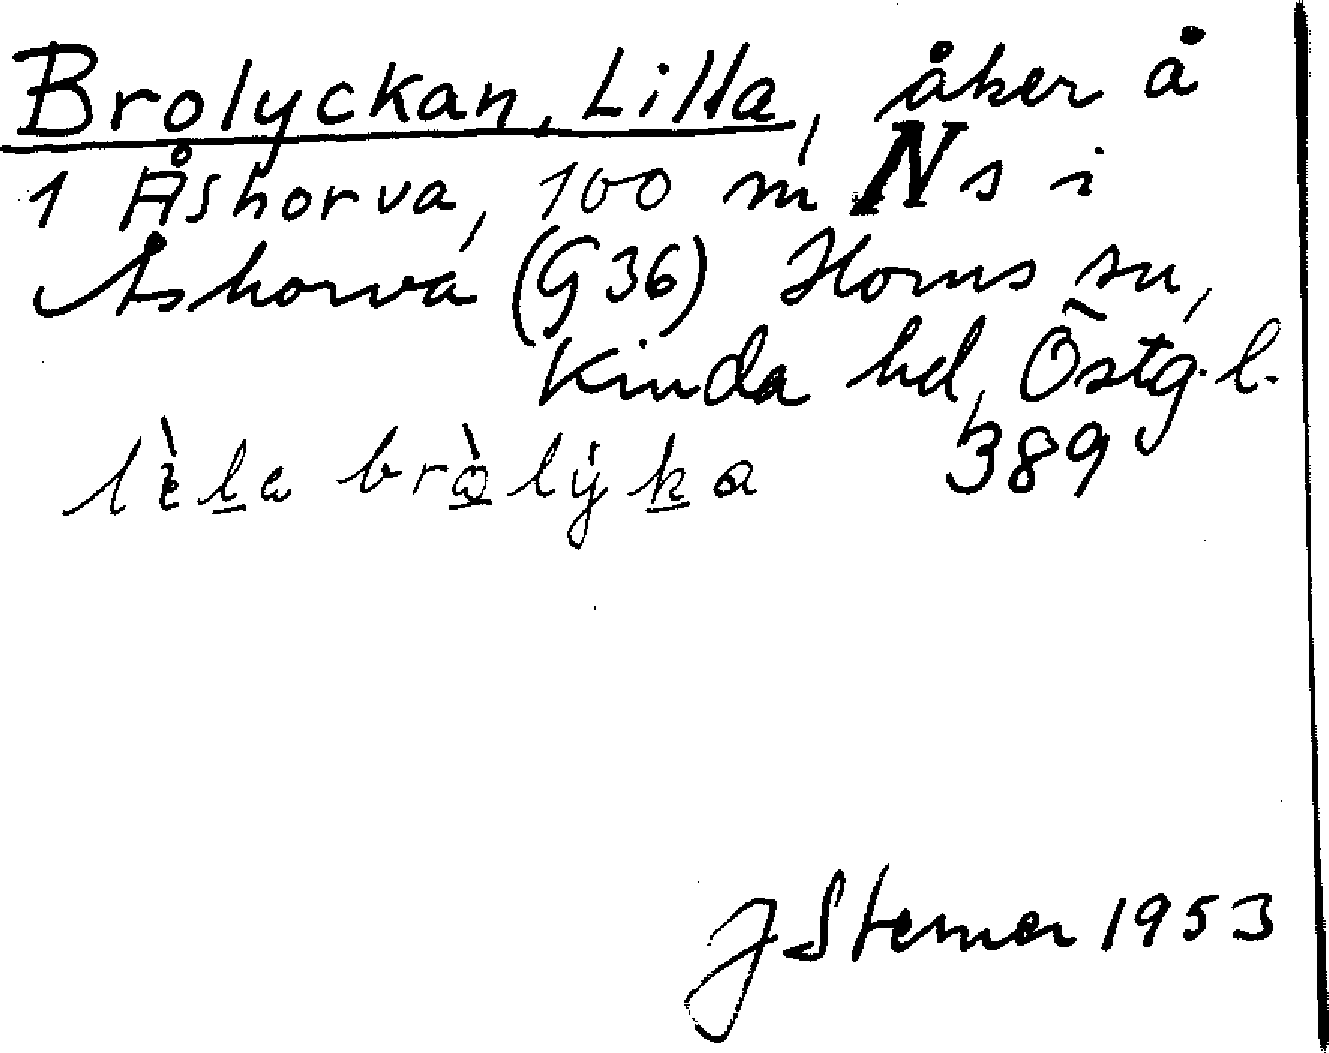 Brolyckan, Lilla, åker å
1 Åshorva, 100 m N s i
Åshorva (G 36) Horns sn,
Kinda hd, Östg. l.
389
J Sterner 1953